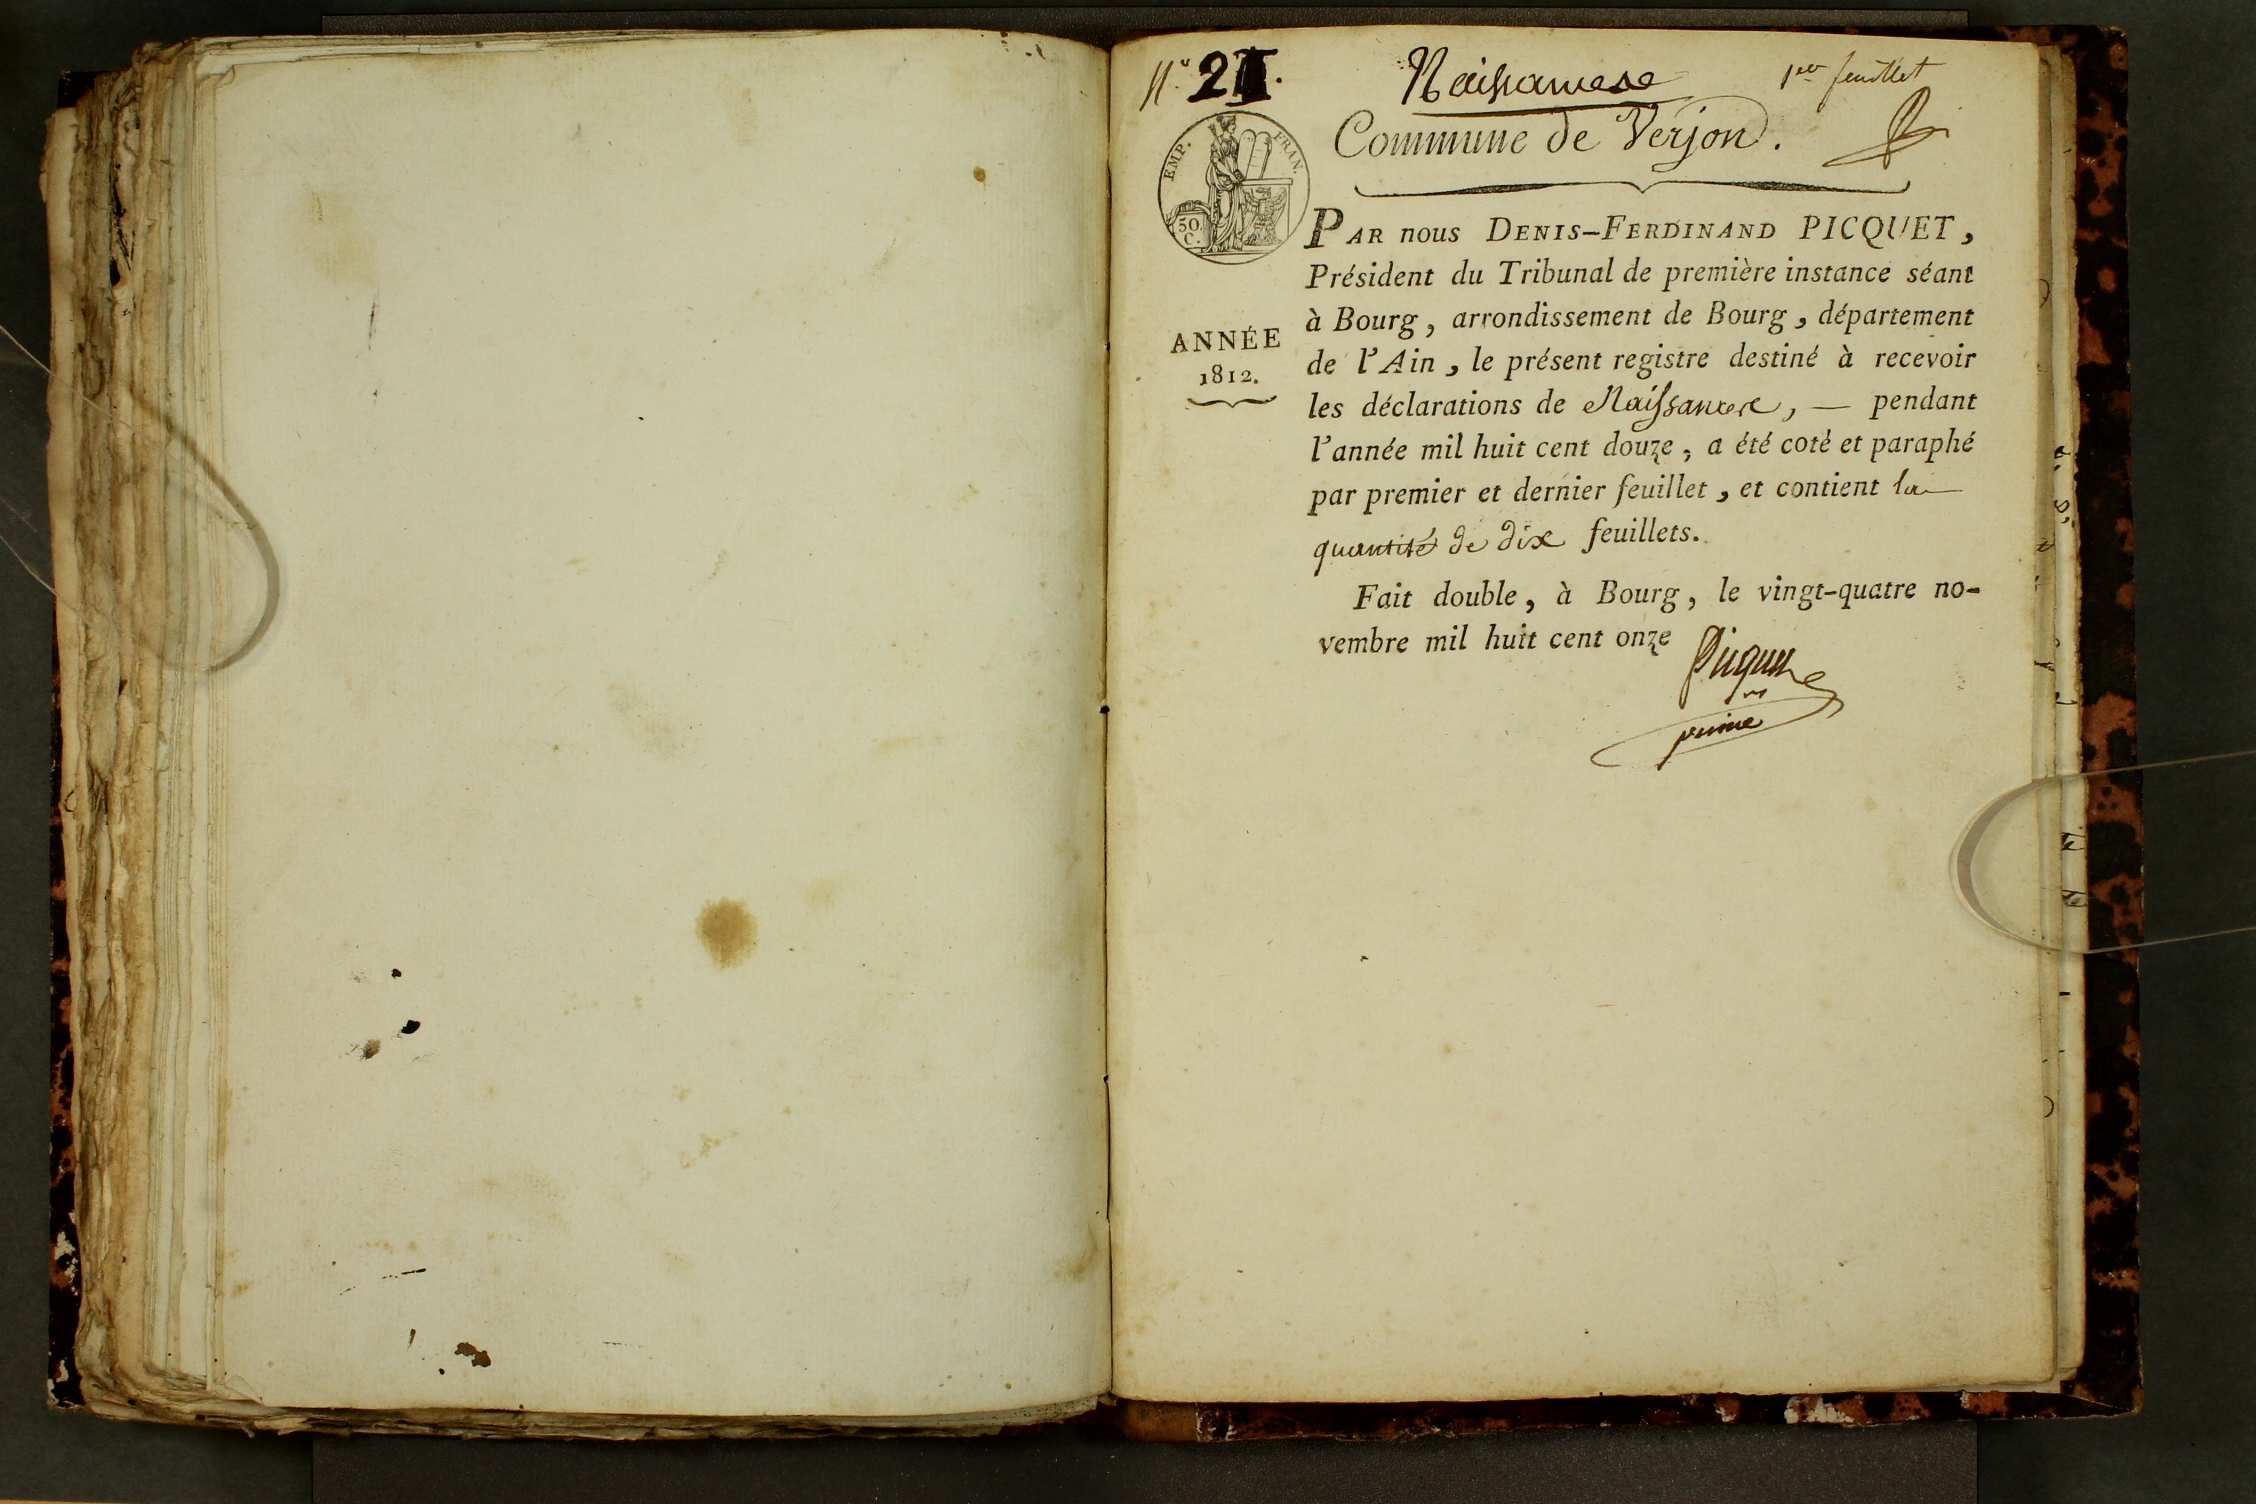 N.°
Naissances
1er feuillet
Commune de Verjon.
EMP. FRAN.
50.
C.
ANNÉE
1812.
PAR nous DENIS-FERDINAND PICQUET,
Président du Tribunal de première instance séant
à Bourg, arrondissement de Bourg, département
de l'Ain, le présent registre destiné à recevoir
les déclarations de Naissances, — pendant
l'année mil huit cent douze, a été coté et paraphé
par premier et dernier feuillet, et contient la
quantité de dix feuillets.
Fait double, à Bourg, le vingt-quatre no-
vembre mil huit cent onze
Picquet